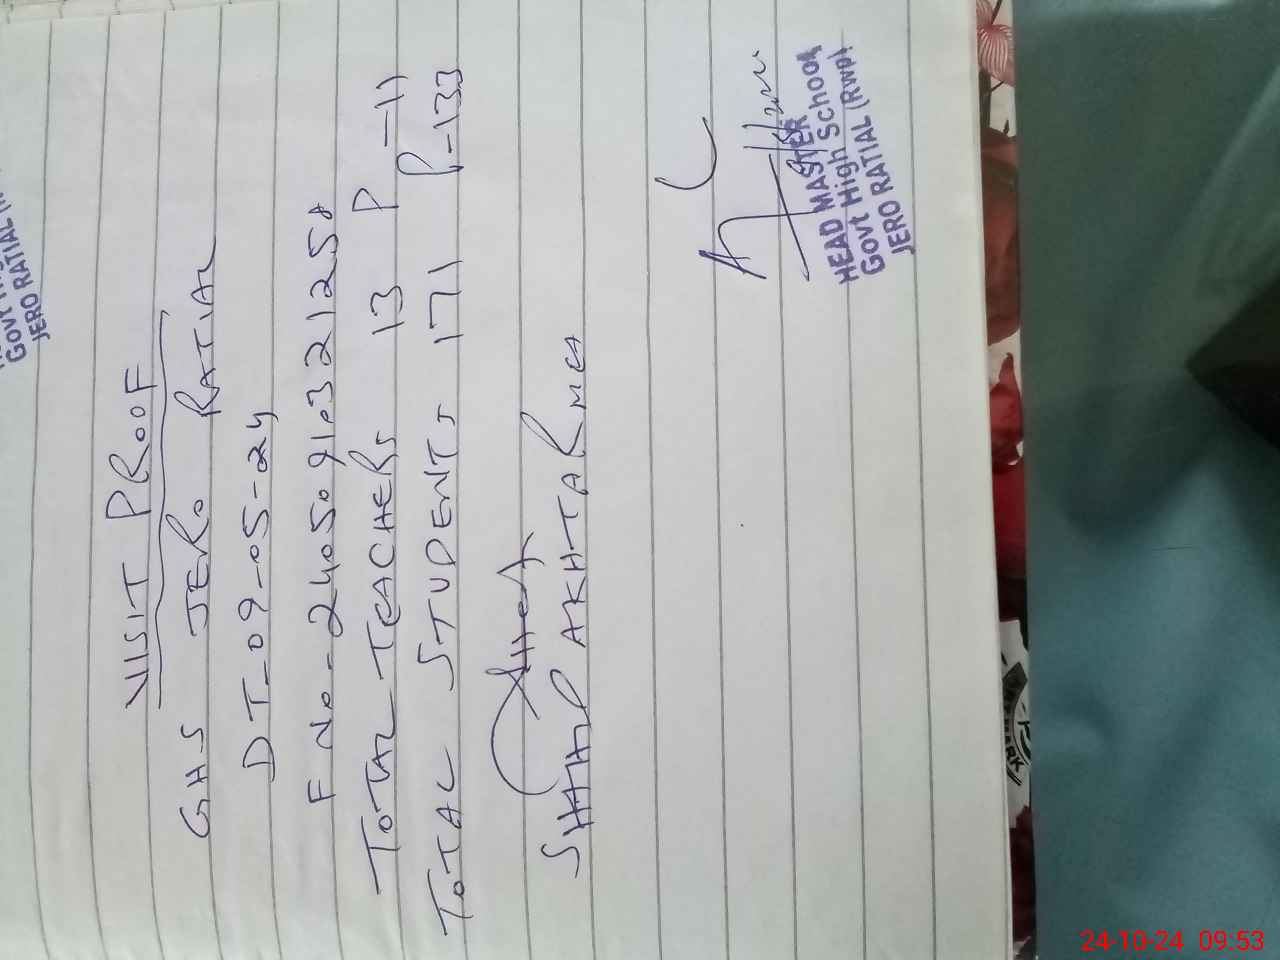 JERO RATIAL
VISIT PROOF
GHS JERO RATIAL
DT-09-05-24
F No-2405091032125
TOTAL TEACHERS 13 P-11
TOTAL STUDENTS 171 P-133
AKHTAR
HEAD MASTER
Govt High School
JERO RATIAL (RWP)
24-10-24 09:53